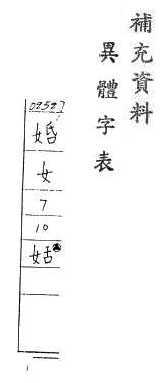 補充資料
異體字表
婚
女
7
10
姑